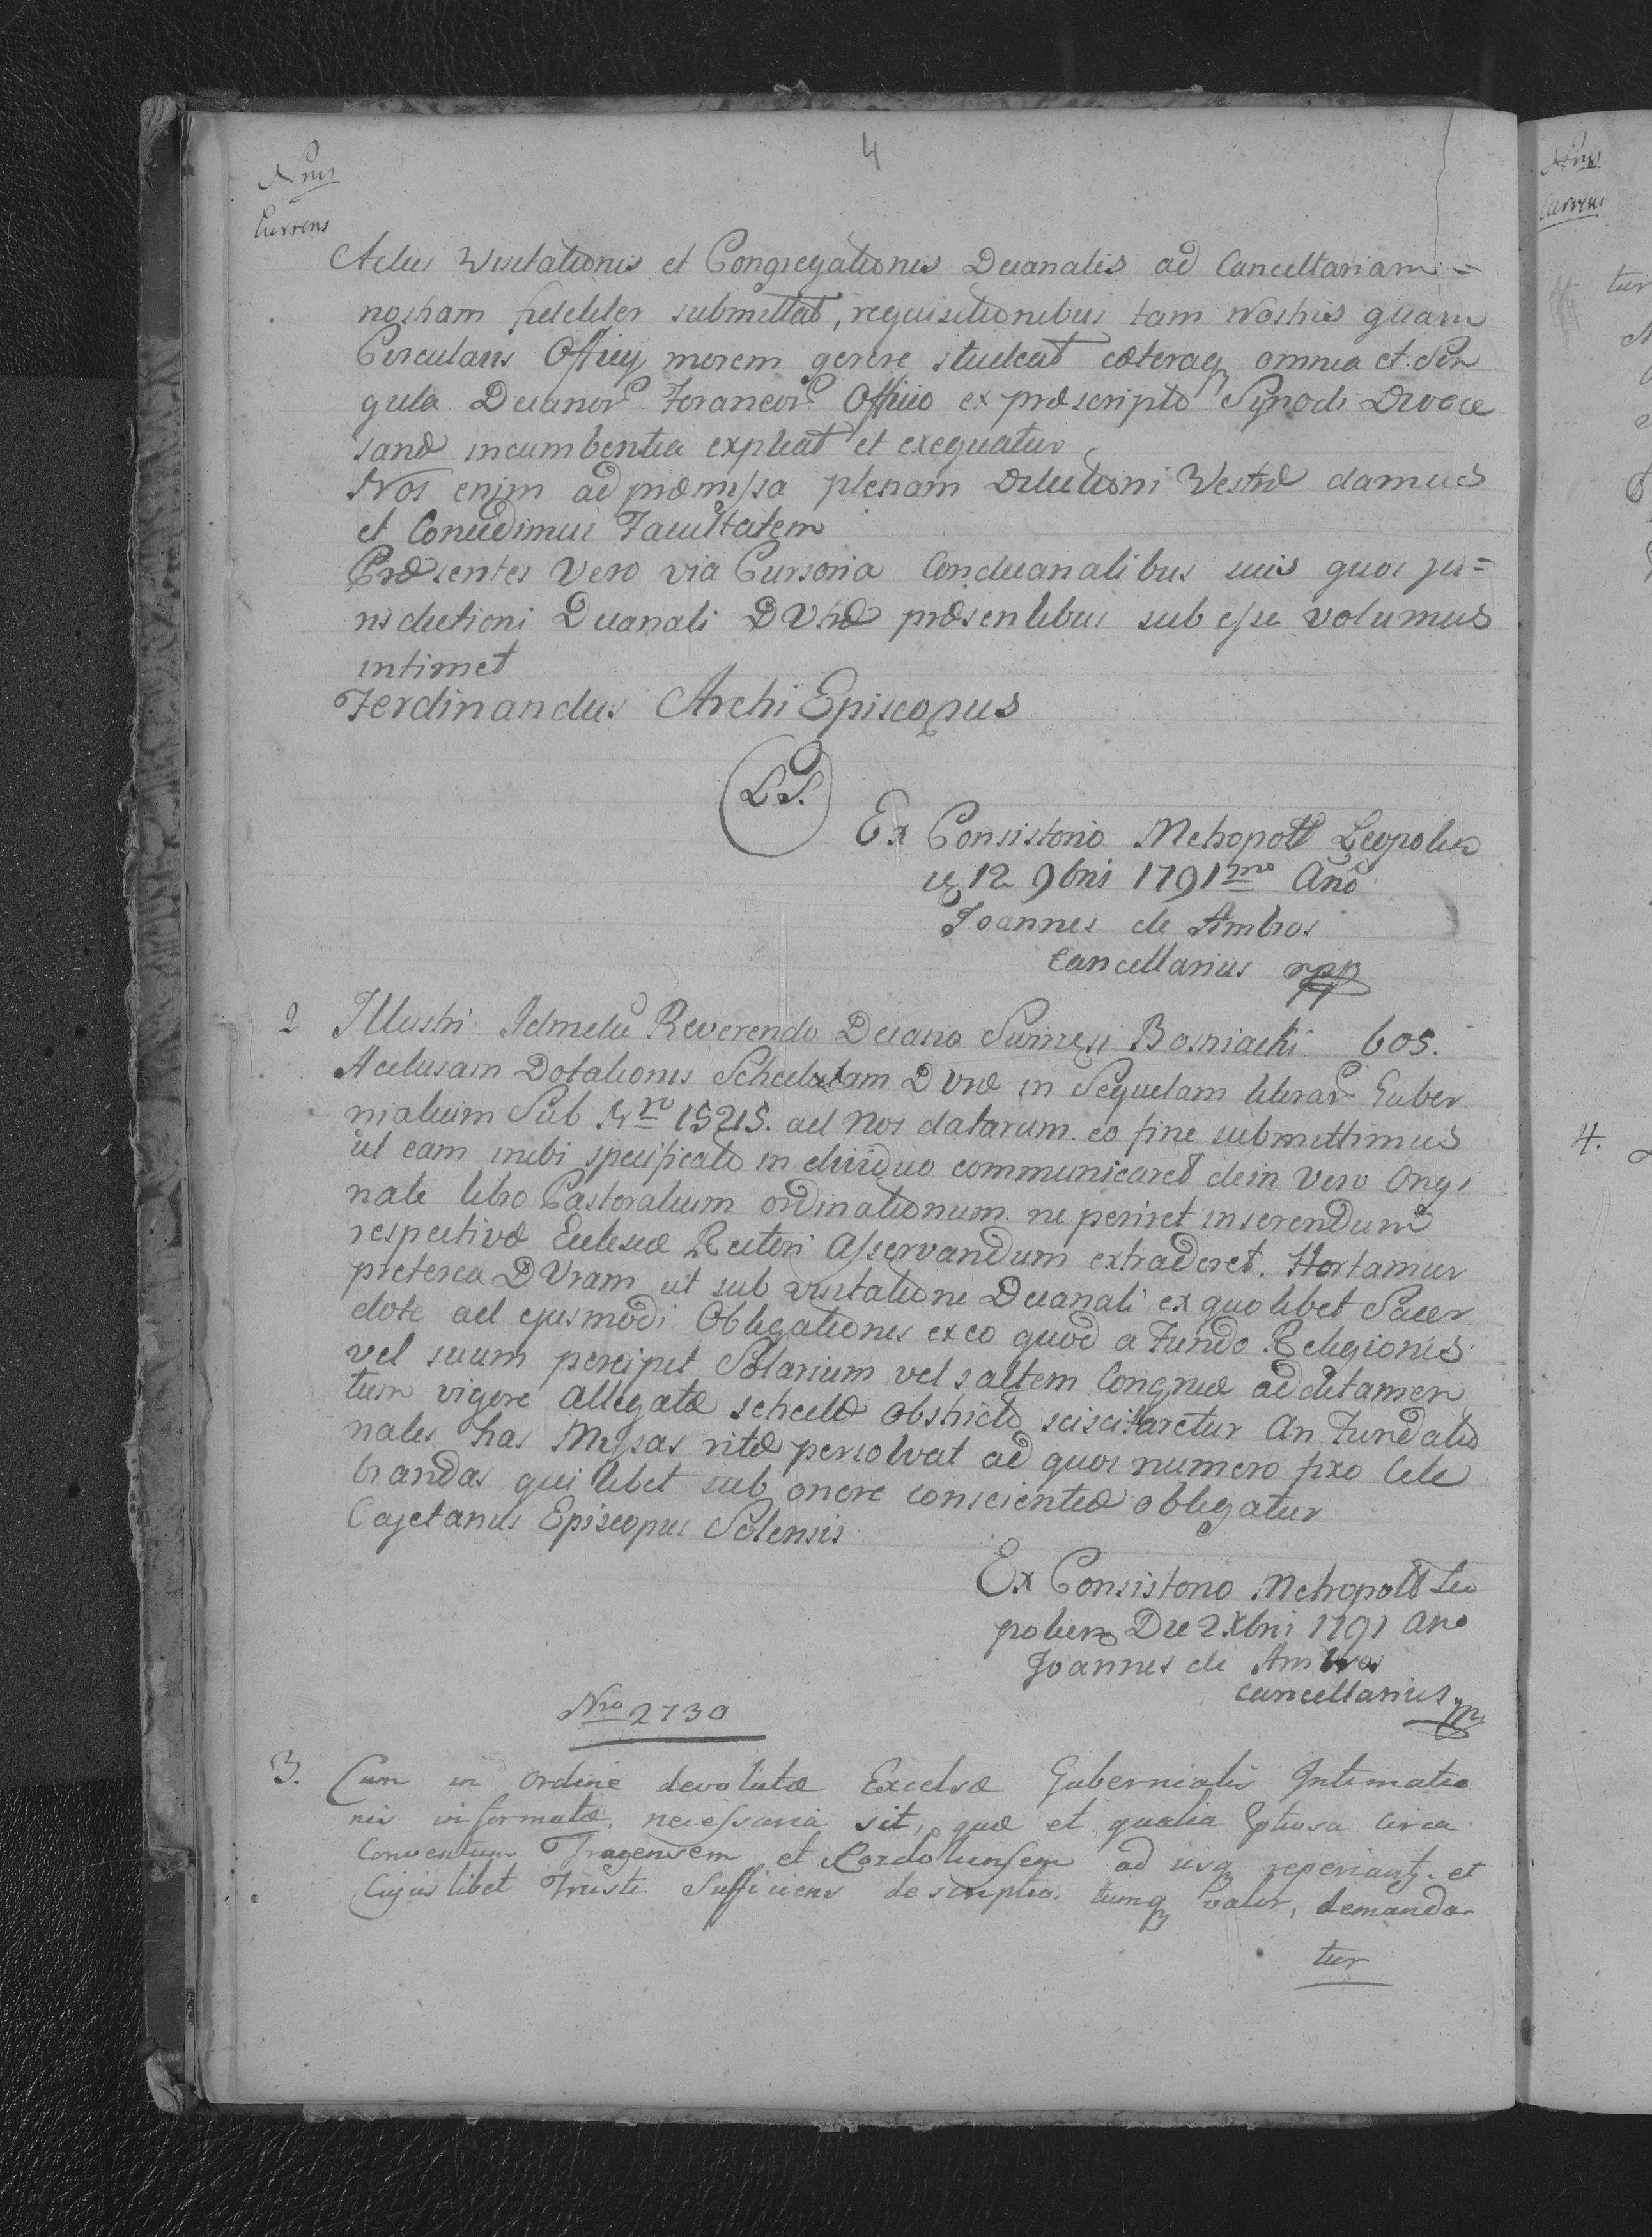 4
Nrus
Currens
Actus Visitationis et Congregationis Decanalis ad Cancellariam=
nostram fideliter submittat, requisitionibus tam Nostris quam
Circularis Officij morem gerere studeat cæteraq omnia et Sin
gula Decanor Foraneor Officio ex præscripto Synodi Diœce
sanæ incumbentia expleat et exequatur
Nos enim ad præmissa plenam Dilectioni Vestræ damus
et Concedimus Facultatem
Præsentes Vero via Cursoria Condecanalibus suis quos ju=
risdictioni Decanali D Vræ præsentibus sub esse volumus
intimet
Ferdinandus Archi Episcopus
L.S.
Ex Consistorio Metropott Leopolien
12 9bris 1791mo Año
Joannes de Ambros
Cancellarius mpp
2 Illustri Admdu Reverendo Decano Bosniacki 605.
Aclusam Dotationis Schedulam D Vræ in Sequelam literar Guber
nialium Sub Nro 15215. ad Nos datarum eo fine submittimus
ut eam inibi specificato individuo communicaret dein Vero Origi
nale libro Pastoralium ordinationum ne periret inserendum
respectivæ Ecclesiæ Rectori Asservandum extraderet. Hortamur
preterea D Vram ut sub visitatione Decanali ex quo libet Sacer
dote ad ejusmodi Obligationes ex eo quod a Fundo Religionis
vel suum percipit Solarium vel saltem Congruæ additamen
tum vigore allegatæ schedæ obstricto sciscitaretur an Fundatio
nales has Missas rite persolvat ad quos numero fixo Cele
brandas qui libet sub onere conscientiæ obligatur
Cajetanus Episcopus Solensis
Ex Consistorio Metropott Leo
polien Die 2 Xbri 1791 ano
Joannes de Ambros
cancellarius mp
Nro 2730
3. Cum in ordine devolutæ Excelsæ Gubernialis Intimatio
nis informatio necessaria sit, quæ et qualia circa
Conventum et ad usq reperiant et
Cujuslibet Frusti Sufficiens descriptio tumq valor, demanda-
tur
Nrus
Currens
tur
4.